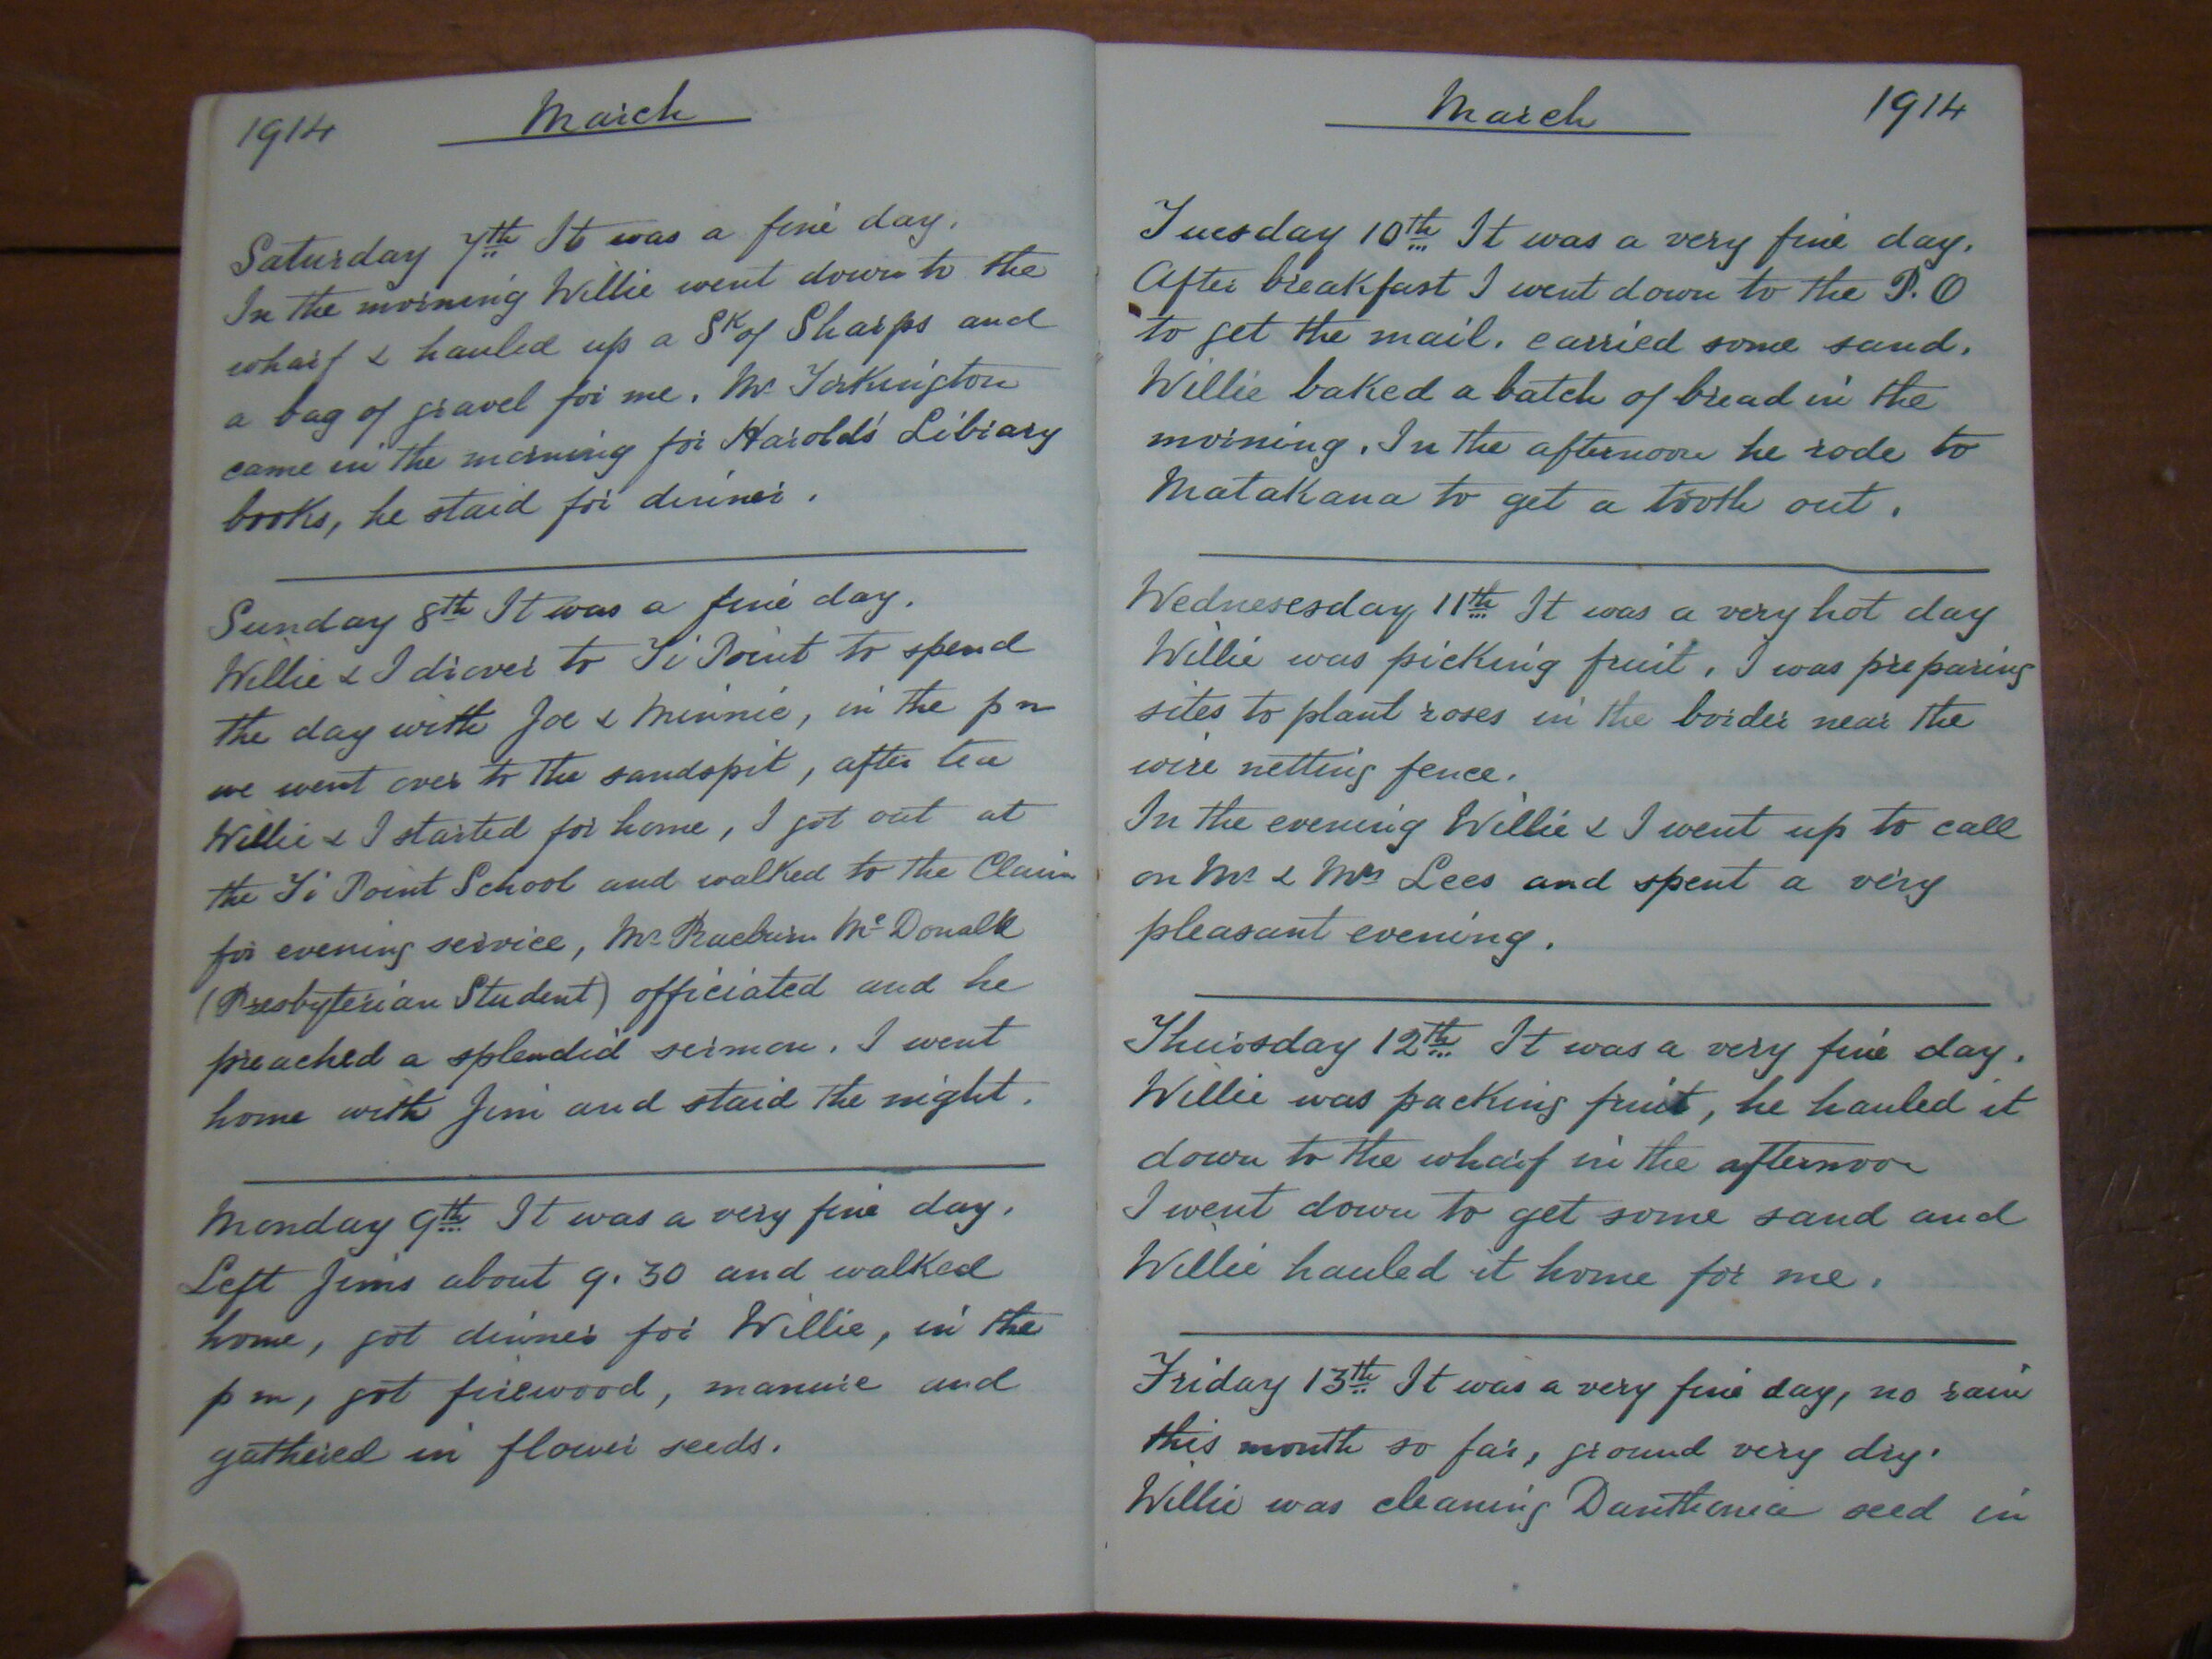 1914 March
Saturday 7th It was a fine day.
In the morning Willie went down to the
wharf & hauled up a Sk of Sharps and
a bag of gravel for me. Mr Torkington
came in the morning for Harold's Library
books, he staid for dinner.
Sunday 8th It was a fine day.
Willie & I drover to Ti Point to spend
the day with Joe & Minnie, in the pm
we went over to the sandspit, after tea
Willie & I started for home, I got out at
the Ti Point School and walked to the Claim
for evening service, Mr Raeburn McDonalk
(Presbyterian Student) officiated and he
preached a splendid sermon. I went
home with Jim and staid the night.
Monday 9th It was a very fine day.
Left Jims about 9.30 and walked
home, got dinner for Willie, in the
pm, got firewood, manure and
gathered in flower seeds.
March 1914
Tuesday 10th It was a very fine day.
After breakfast I went down to the P.O
to get the mail. carried some sand.
Willie baked a batch of bread in the
morning. In the afternoon he rode to
Matakana to get a tooth out.
Wednesesday 11th It was a very hot day
Willie was picking fruit. I was preparing
sites to plant roses in the border near the
wire netting fence.
In the evening Willie & I went up to call
on Mr & Mrs Lees and spent a very
pleasant evening.
Thursday 12th It was a very fine day.
Willie was packing fruit, he hauled it
down to the wharf in the afternoon
I went down to get some sand and
Willie hauled it home for me.
Friday 13th It was a very fine day, no rain
this month so far, ground very dry.
Willie was cleaning Danthonia seed in